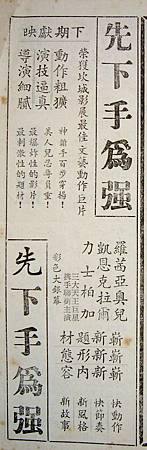 先下手為强
榮獲坎城影展最佳文藝動作巨片
下期獻映
動作粗獷
演技逼真
導演細膩
神鎗千百步穿楊！
美人兒忍辱負重！
最爆炸性的影片！
最刺激性的題材！
羅蒿亞奧兒
凱恩克拉爾
力士柏加
三大天王巨星
携手聯銜主演
彩色大銀幕
嶄嶄嶄
新新新
題形內
材態容
快動作
快節奏
新風格
新故事
先下手為强